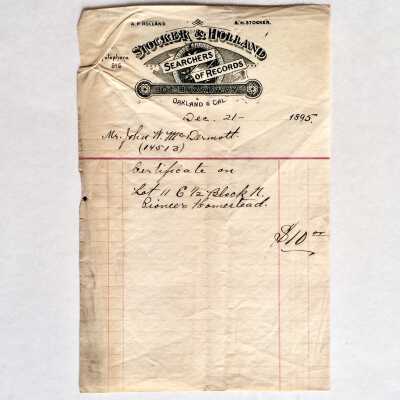 A. P. HOLLAND. A. H. STOCKER.
STOCKER & HOLLAND
SEARCHERS
OF RECORDS
Telephone
OAKLAND, CAL.
Dec. 21- 1895
Mr. John W. McDermott
(14513)
Certificate on
Lot 11 & ½ Block N.
Pioneer Homestead.
$10.00